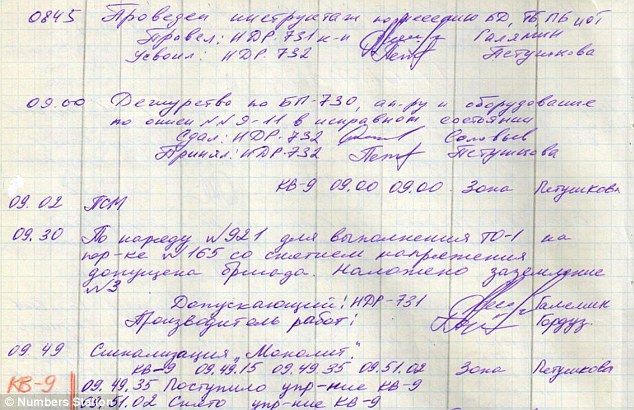 0845 Проведен инструктаж по несению БД, ТБ, ПБ
Провел: НДР-731 к-н
Усвоил: НДР 732 Петушкова
09.00 Дежурство по БП-730, ап-ру и оборудование
по описи №№ 9-11 в исправном состоянии
Сдал: НДР 732 Соловьев
Принял: НДР-732 Петушкова
КВ-9 09.00 09.00 Зона Петушкова
09.02 ПСМ
09.30 По наряду №921 для выполнения ТО-1 на
пер-ке №165 со снятием напряжения
допущена бригада. Наложено заземление
№3
Допускающий: НДР-731
Производитель работ:
09.49 Сигнализация "Монолит".
КВ-9 09.49.15 09.49.35 09.51.02 Зона Петушкова
КВ-9 09.49.35 Поступило упр-ние КВ-9
09.51.02 Снято упр-ние КВ-9
© Numbers Station